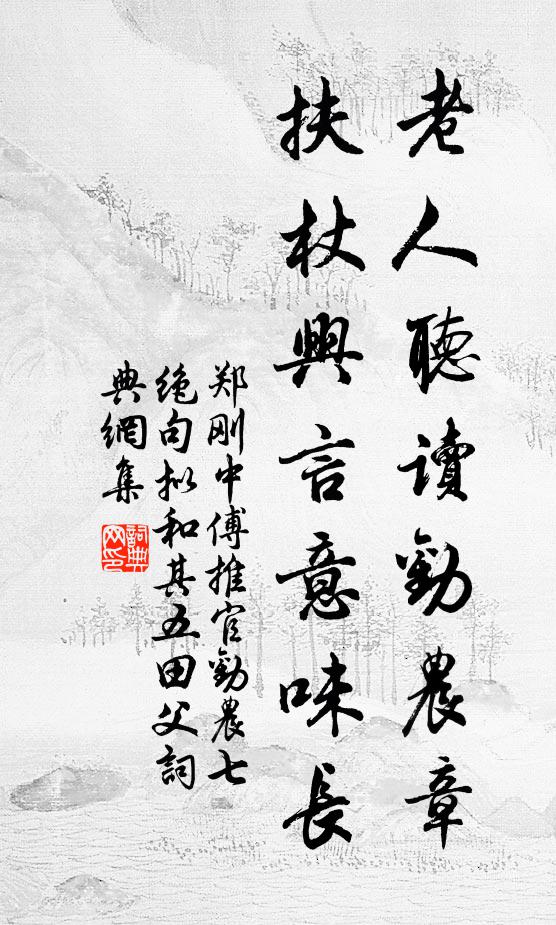 老人聽讀勸農章
扶杖興言意味長
郑刚中傅推官勸農七
绝句拟和其五田父詞
典網集
詞典网印